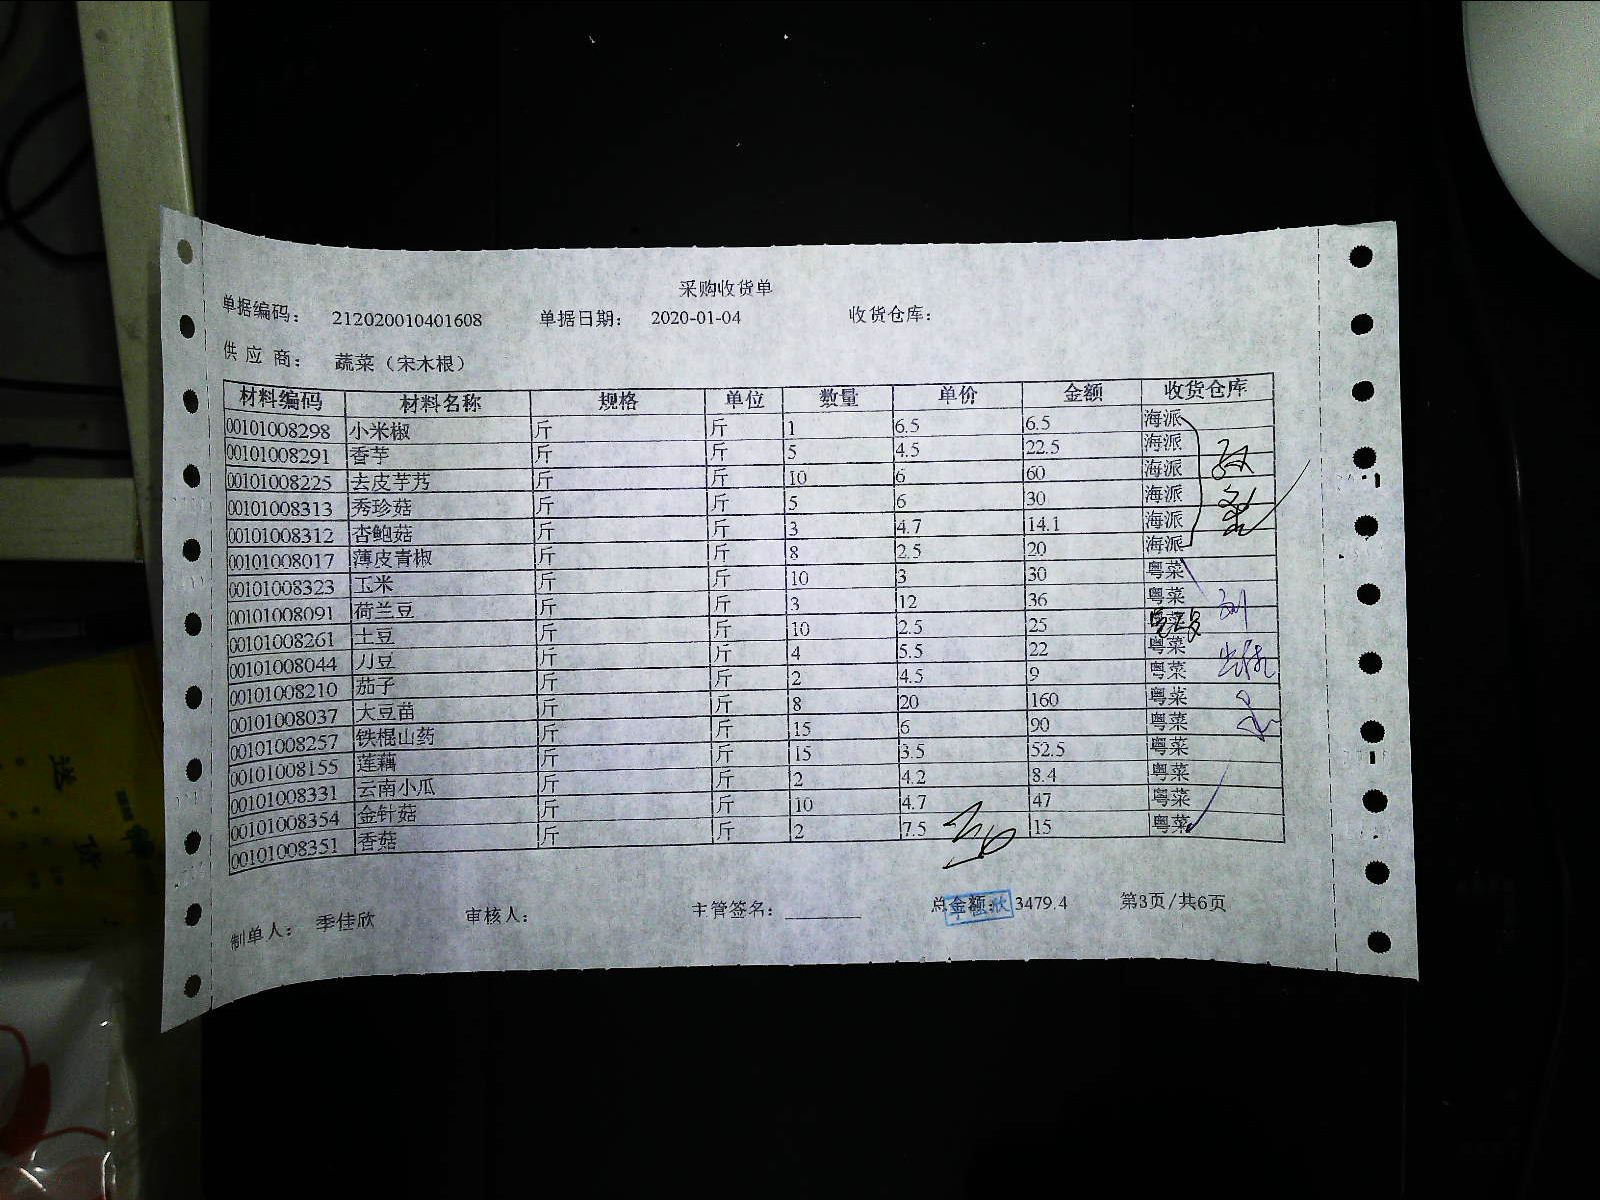 采购收货单
单据编码: 212020010401608 单据日期: 2020-01-04 收货仓库:
供应商: 蔬菜（宋木根）
材料编码 材料名称 规格 单位 数量 单价 金额 收货仓库
00101008298 小米椒 斤 斤 1 6.5 6.5 海派
00101008291 香芋 斤 斤 5 4.5 22.5 海派
00101008225 去皮芋艿 斤 斤 10 6 60 海派
00101008313 秀珍菇 斤 斤 5 6 30 海派
00101008312 杏鲍菇 斤 斤 3 4.7 14.1 海派
00101008017 薄皮青椒 斤 斤 8 2.5 20 海派
00101008323 玉米 斤 斤 10 3 30 粤菜
00101008091 荷兰豆 斤 斤 3 12 36 粤菜
00101008261 土豆 斤 斤 10 2.5 25
00101008044 刀豆 斤 斤 4 5.5 22 粤菜
00101008210 茄子 斤 斤 2 4.5 9 粤菜
00101008037 大豆苗 斤 斤 8 20 160 粤菜
00101008257 铁棍山药 斤 斤 15 6 90 粤菜
00101008155 莲藕 斤 斤 15 3.5 52.5 粤菜
00101008331 云南小瓜 斤 斤 2 4.2 8.4 粤菜
00101008354 金针菇 斤 斤 10 4.7 47 粤菜
00101008351 香菇 斤 斤 2 7.5 15 粤菜
制单人: 季佳欣 审核人: 主管签名: 总金额: 3479.4 第3页/共6页